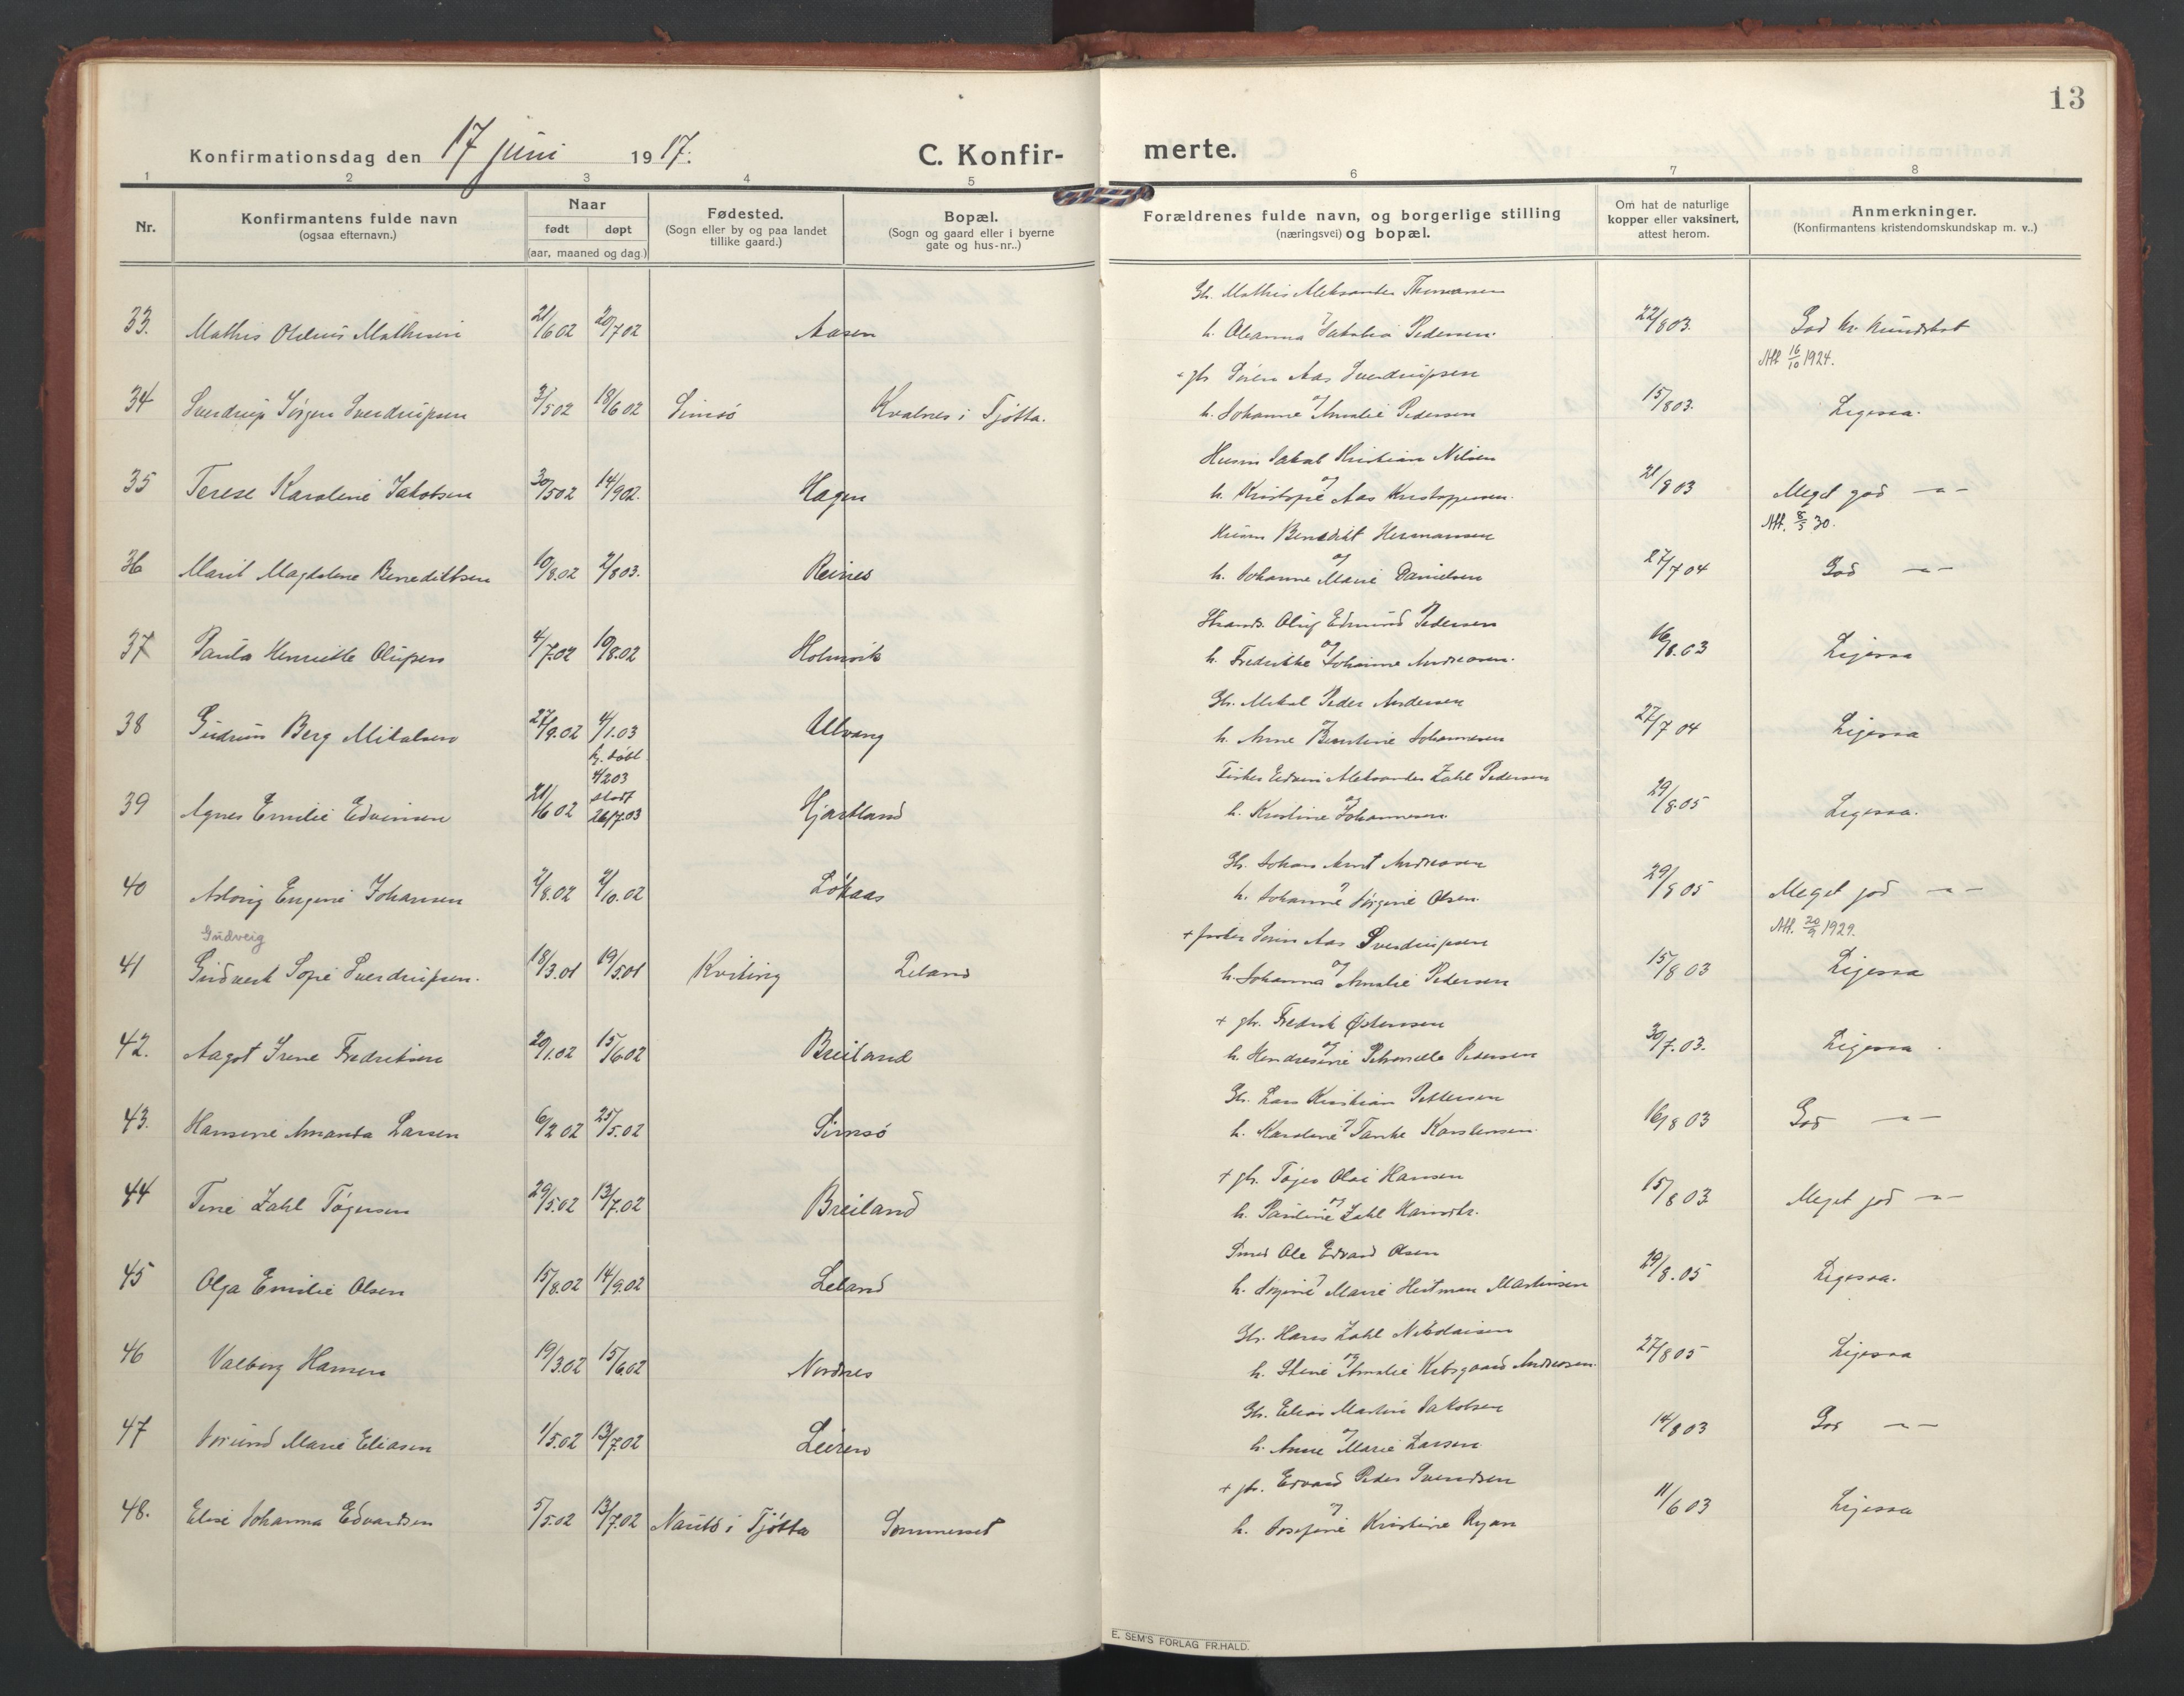 13
Konfirmationsdag den 17 juni 1917.
C. Konfirmerte.
1 2 3 4 5 6 7 8
Nr.
Konfirmantens fulde navn
(ogsaa efternavn.)
Naar
født døpt
(aar, maaned og dag.)
Fødested.
(Sogn eller by og paa landet
tillike gaard.)
Bopæl.
(Sogn og gaard eller i byerne
gate og hus-nr..)
Forældrenes fulde navn, og borgerlige stilling
(næringsvei) og bopæl.
Om hat de naturlige
kopper eller vaksinert,
attest herom.
Anmerkninger.
(Konfirmantens kristendomskundskap m. v..)
Gb. Mathis Aleksander
33. Mathis 21/6 02 20/7 02 Aasen h. Oleanna Jakobia Pedersen. 22/8 03. God kr. kundskab
Att 16/10 1924.
+ gbr Søren Aas Sverdrupsen
34 Sverdrup Jørgen Sverdrupsen 3/5 02 18/6 02 Simsö Kvalnes i Tjøtta. h. Johanna og Amalie Pedersen 15/8 03. Ligesaa.
Husm Jakob Kristian Nilsen
35 Terese Karoline Jakobsen 30/5 02 14/9 02. Hagen h. og Aas 21/8 03 Meget god -"-
Att. 8/5 30.
Husm Benedikt Hermansen
36 Marit Magdalene Benediktsen 10/8.02 2/8 03. Reines h. Johanne og Marie Danielsen 27/7 04 God -"-
Strands. Oluf Edmund Pedersen
37 Paula Henriette Olufsen 4/7.02 10/8.02 Holmvik h. Fredrikke og Johanne Andreasen. 16/8.03 Ligesaa
Gb. Mikal Peder Andersen
38 Gudrun Berg Mikalsen 27/9.02 4/1.03 Ulvang h. Anne og Johannesen 27/7 04 Ligesaa
hj. døbt
4/2 03
Fisker Edvin Aleksander Zahl Pedersen
39 Agnes Emilie Edvinsen 21/6 02 stadf 26/7.03 Hjartland h. Kristine og Johannesen. 29/8.05 Ligesaa.
Gb. Johan Arnt Andreasen
40 Aslaug Eugenie Johansen 2/8.02 2/10.02 Løkaas h. Johanne og Jørgine Olsen. 29/8 05 Meget god -"-
Att. 20/9 1929.
Gudveig
+ Søren Aas Sverdrupsen
41 Sofie Sverdrupsen. 18/3.01 19/5 01 Kviting Leland h. Johanna og Amalie Pedersen 15/8 03 Ligesaa
+ gbr. Fredrik Østensen
42. Aagot Irene Fredriksen 20/1.02 15/6 02 Breiland h. og Petronelle Pedersen 30/7.03. Ligesaa
Gb. Lars Kristian Pettersen
43. Hansine Amanda Larsen 6/2 02 25/5.02 Simsö h. Karoline og Karstensen. 16/8 03 God -"-
+ gb. Tøger Olai Hansen
44 Tine Zahl Tøgersen 29/5.02 13/7.02 Breiland h. Pauline og Zahl Hansdtr. 15/8 03 Meget god -"-
Smed Ole Edvard Olsen
45 Olga Emilie Olsen 15/8.02 14/9.02 Leland h. Jørgine og Marie Heitman Martinsen 29/8.05 Ligesaa.
Gb. Hans Zahl Nikolaisen
46 Valborg Hansen 19/3.02 15/6 02 Nordnes h. Stine og Amalie Andreasen. 27/8 05 Ligesaa
Gb. Elias Martin Jakobsen
47 Marie Eliasen 1/5.02 13/7.02 Leiren h. Anne og Marie Larsen 14/8 03 God -"-
+ gb. Edvard Peder Svendsen
48. Elise Johanna Edvardsen 5/5.02 13/7.02 i Tjøtta Sommerset h. Josefine og Kristine Ryan 11/6 03 Ligesaa
E. SEM'S FORLAG FR.HALD.